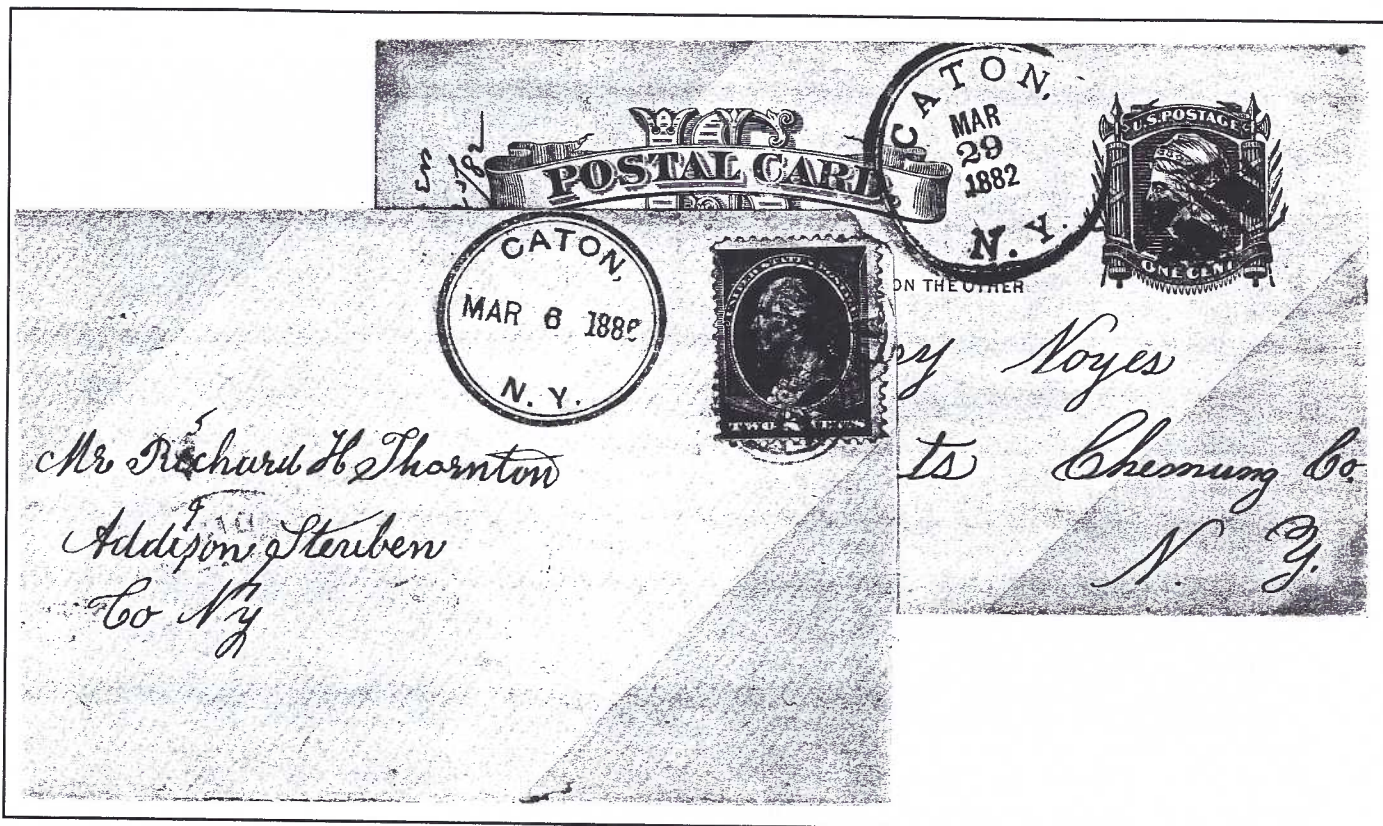 POSTAL CARD
CATON,
MAR
29
1882
N. Y.
U.S. POSTAGE
ONE CENT
ON THE OTHER
Noyes
ts Chemung Co.
N. Y.
CATON,
MAR 6 188
N. Y.
UNITED STATES POSTAGE
TWO CENTS
Mr Richard H Thornton
Addison Steuben
Co Ny